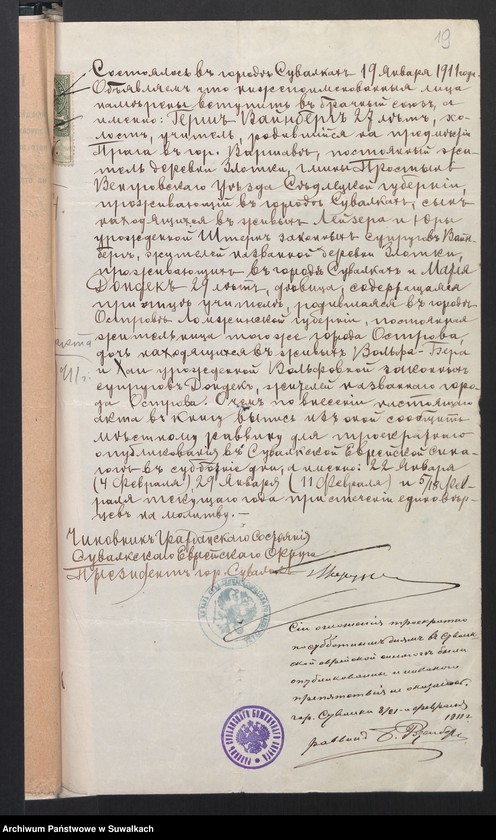 19
Состоялось въ городѣ Сувалкахъ 19 Января 1911 года.
Объявляемъ что нижепоименованныя лица
намѣрены вступить въ брачный союзъ, а
именно: Герш Вайнберг 27 лѣтъ, хо-
лостъ, учитель, родившійся на предмѣстіи
Прага въ гор. Варшавѣ, постоянный жи-
тель деревни Злотки, гмины Простынь
Венгровскаго Уѣзда Сѣдлецкой губерніи,
проживающій въ городѣ Сувалкахъ, сынъ
находящихся въ живыхъ Лейзера и
урожденной Штернъ законныхъ супруговъ Вайн-
бергъ, жителей названной деревни Злотки,
проживающихъ въ городѣ Сувалкахъ и Маля
Дондекъ 29 лѣтъ, дѣвица, содержащаяся
при отцѣ учителѣ, родившаяся въ городѣ
Островѣ Ломжинской губерніи, постоянная
жительница тогоже города Острова,
дочь находящихся въ живыхъ Вольфа-Бера
и Хаи урожденной Вольфовной законныхъ
супруговъ Дондекъ, жителей названнаго горо-
да Острова. О чемъ по внесеніи настоящаго
акта въ книгу выпись изъ оной сообщить
мѣстному раввину для троекратнаго
опубликованія въ Сувалкской Еврейской сина-
гогѣ въ субботніе дни, а именно: 22 Января
(4 Февраля), 29 Января (11 Февраля) и 5/18 Фев-
раля текущаго года при стеченіи единовѣр-
цевъ на молитву. —
Чиновникъ Гражданскаго Состоянія
Сувалкскаго Еврейскаго Округа
Президентъ гор. Сувалкъ
акта
1911 г.
Сіи оглашенія троекратно
по субботнимъ днямъ въ Сувалк-
ской еврейской синагогѣ были
опубликованы и никакого
препятствія не оказалось.
гор. Сувалки февраля
1911 г.
раввинъ
Archiwum Państwowe w Suwałkach